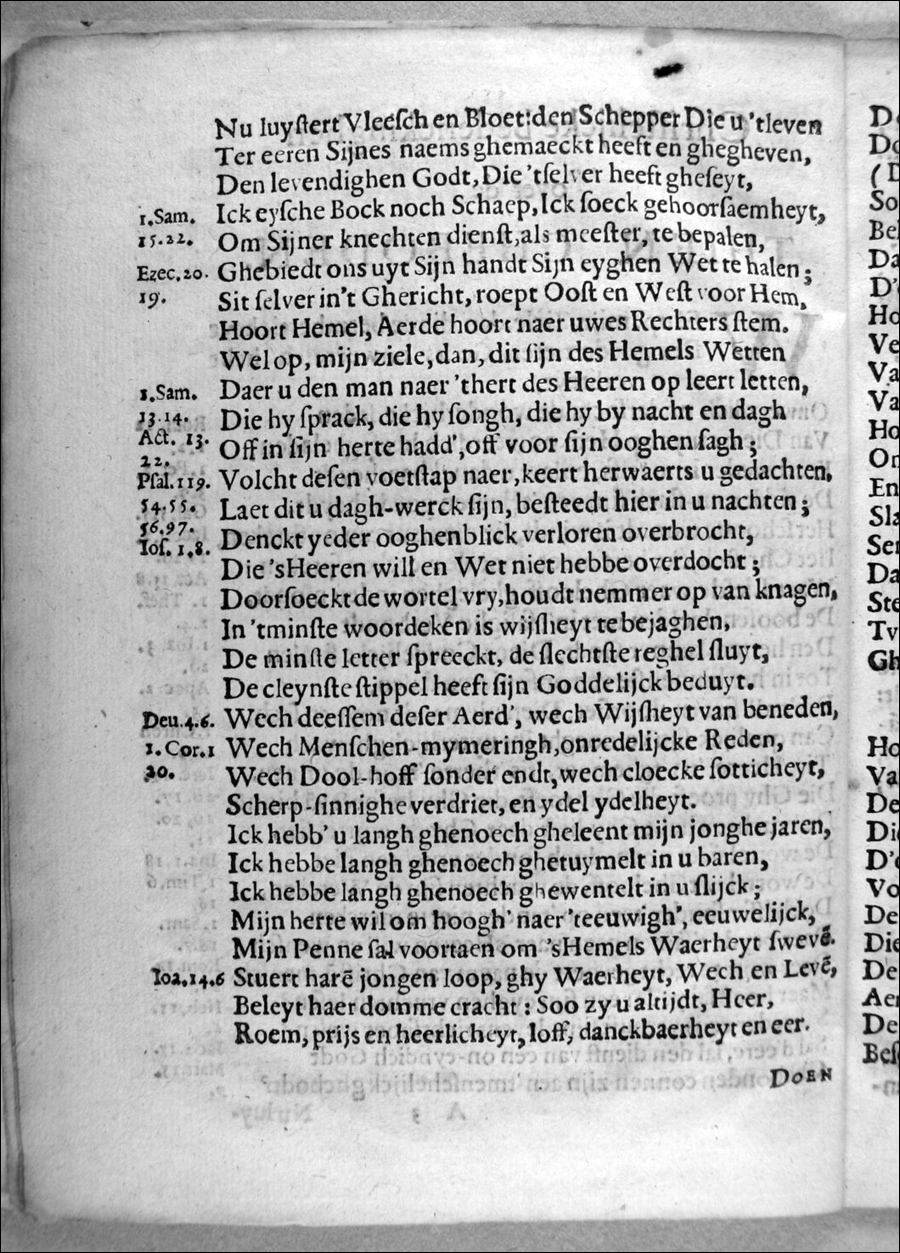 Nu luyſtert Vleeſch en Bloet: den Schepper Die u 'tleven
Ter eeren Sijnes naems ghemaeckt heeft en ghegheven,
Den levendighen Godt, Die 'tſelver heeft gheſeyt,
1.Sam. Ick eyſche Bock noch Schaep, Ick ſoeck gehoorſaemheyt,
15.22. Om Sijner knechten dienſt, als meeſter, te bepalen,
Ezec.20. Ghebiedt ons uyt Sijn handt Sijn eyghen Wet te halen;
19. Sit ſelver in't Ghericht, roept Ooſt en Weſt voor Hem,
Hoort Hemel, Aerde hoort naer uwes Rechters ſtem.
Wel op, mijn ziele, dan, dit ſijn des Hemels Wetten
1.Sam. Daer u den man naer 'thert des Heeren op leert letten,
13.14. Die hy ſprack, die hy ſongh, die hy by nacht en dagh
Act. 13. Off in ſijn herte hadd', off voor ſijn ooghen ſagh;
22.
Pſal.119. Volcht deſen voetſtap naer, keert herwaerts u gedachten,
54.55. Laet dit u dagh-werck ſijn, beſteedt hier in u nachten;
56.97. Denckt yeder ooghenblick verloren overbrocht,
Ioſ. 1.8.
Die 'sHeeren will en Wet niet hebbe overdocht;
Doorſoeckt de wortel vry, houdt nemmer op van knagen,
In 'tminſte woordeken is wijſheyt te bejaghen,
De minſte letter ſpreeckt, de ſlechtſte reghel ſluyt,
De cleynſte ſtippel heeft ſijn Goddelijck beduyt.
Deu.4.6. Wech deeſſem deſer Aerd', wech Wijſheyt van beneden,
1.Cor.1 Wech Menſchen-mymeringh, onredelijcke Reden,
20. Wech Dool-hoff ſonder endt, wech cloecke ſotticheyt,
Scherp-ſinnighe verdriet, en ydel ydelheyt.
Ick hebb' u langh ghenoech gheleent mijn jonghe jaren,
Ick hebbe langh ghenoech ghetuymelt in u baren,
Ick hebbe langh ghenoech ghewentelt in u ſlijck;
Mijn herte wil om hoogh' naer 'teeuwigh', eeuwelijck,
Mijn Penne ſal voortaen om 'sHemels Waerheyt ſwevē.
Ioa.14.6 Stuert harē jongen loop, ghy Waerheyt, Wech en Levē,
Beleyt haer domme cracht: Soo zy u altijdt, Heer,
Roem, prijs en heerlicheyt, loff, danckbaerheyt en eer.
DOEN